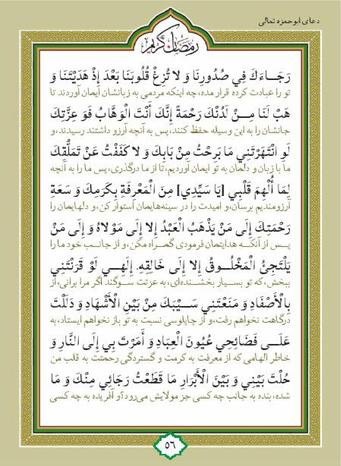 دعای ابوحمزه ثمالی
رمضان کریم
رَجَاءَكَ فِي صُدُورِنَا وَ لَا تُزِغْ قُلُوبَنَا بَعْدَ إِذْ هَدَيْتَنَا وَ
تو را عبادت کرده قرار مده، چه اینکه مردمی به زبانشان ایمان آوردند تا
هَبْ لَنَا مِنْ لَدُنْكَ رَحْمَةً إِنَّكَ أَنْتَ الْوَهَّابُ فَوَ عِزَّتِكَ
جانشان را به این وسیله حفظ کنند، پس به آنچه آرزو داشتند رسیدند، و
لَوِ انْتَهَرْتَنِي مَا بَرِحْتُ مِنْ بَابِكَ وَ لَا كَفَفْتُ عَنْ تَمَلُّقِكَ
ما با زبان و دلمان به تو ایمان آوردیم، تا از ما درگذری، پس ما را به آنچه
لِمَا أُلْهِمَ قَلْبِي [يَا سَيِّدِي] مِنَ الْمَعْرِفَةِ بِكَرَمِكَ وَ سَعَةِ
آرزومندیم برسان، و امیدت را در سینه‌هایمان استوار کن، و دلهایمان را
رَحْمَتِكَ إِلَى مَنْ يَذْهَبُ الْعَبْدُ إِلَّا إِلَى مَوْلَاهُ وَ إِلَى مَنْ
پس از آنکه هدایتمان فرمودی گمراه مکن، و از جانب خود ما را
يَلْتَجِئُ الْمَخْلُوقُ إِلَّا إِلَى خَالِقِهِ. إِلَهِي لَوْ قَرَنْتَنِي
ببخش، که تو بسیار بخشنده‌ای، به عزتت سوگند اگر مرا برانی، از
بِالْأَصْفَادِ وَ مَنَعْتَنِي سَيْبَكَ مِنْ بَيْنِ الْأَشْهَادِ وَ دَلَلْتَ
درگاهت نخواهم رفت، و از چاپلوسی نسبت به تو باز نخواهم ایستاد، به
عَلَى فَضَائِحِي عُيُونَ الْعِبَادِ وَ أَمَرْتَ بِي إِلَى النَّارِ وَ
خاطر الهامی که از معرفت به کرمت و گستردگی رحمتت به قلب من
حُلْتَ بَيْنِي وَ بَيْنَ الْأَبْرَارِ مَا قَطَعْتُ رَجَائِي مِنْكَ وَ مَا
شده، بنده به جانب چه کسی جز مولایش می‌رود؟ و آفریده به چه کسی
۵۶